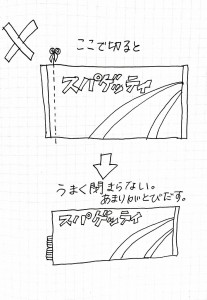 ここで切ると
スパゲッティ
うまく閉まらない。
あまりがとびだす。
スパゲッティ